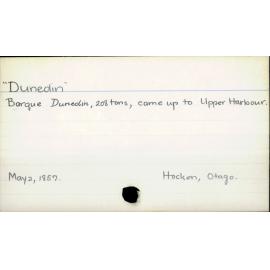 "Dunedin"
Barque Dunedin, 208 tons, came up to Upper Harbour.
May 2, 1857. Hocken, Otago.